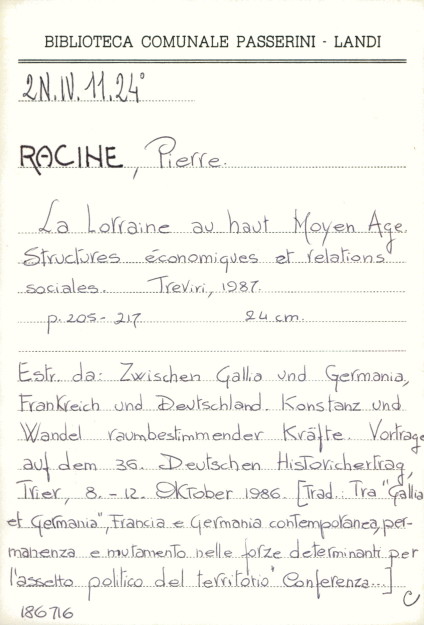 BIBLIOTECA COMUNALE PASSERINI - LANDI
2N.IV.11.24°
RACINE, Pierre.
La Lorraine au haut Moyen Age.
Structures économiques et relations
sociales. Treviri, 1987.
p. 205-217 24 cm.
Estr. da: Zwischen Gallia und Germania,
Frankreich und Deutschland. Konstanz und
Wandel raumbestimmender Kräfte. Vortrage
auf dem 36. Deutschen Historichertrag,
Trier, 8.-12. Oktober 1986. [Trad.: Tra "Gallia
et Germania", Francia e Germania contemporanea, per-
manenza e mutamento nelle forze determinanti per
l'assetto politico del territorio" Conferenza...]
C
186716